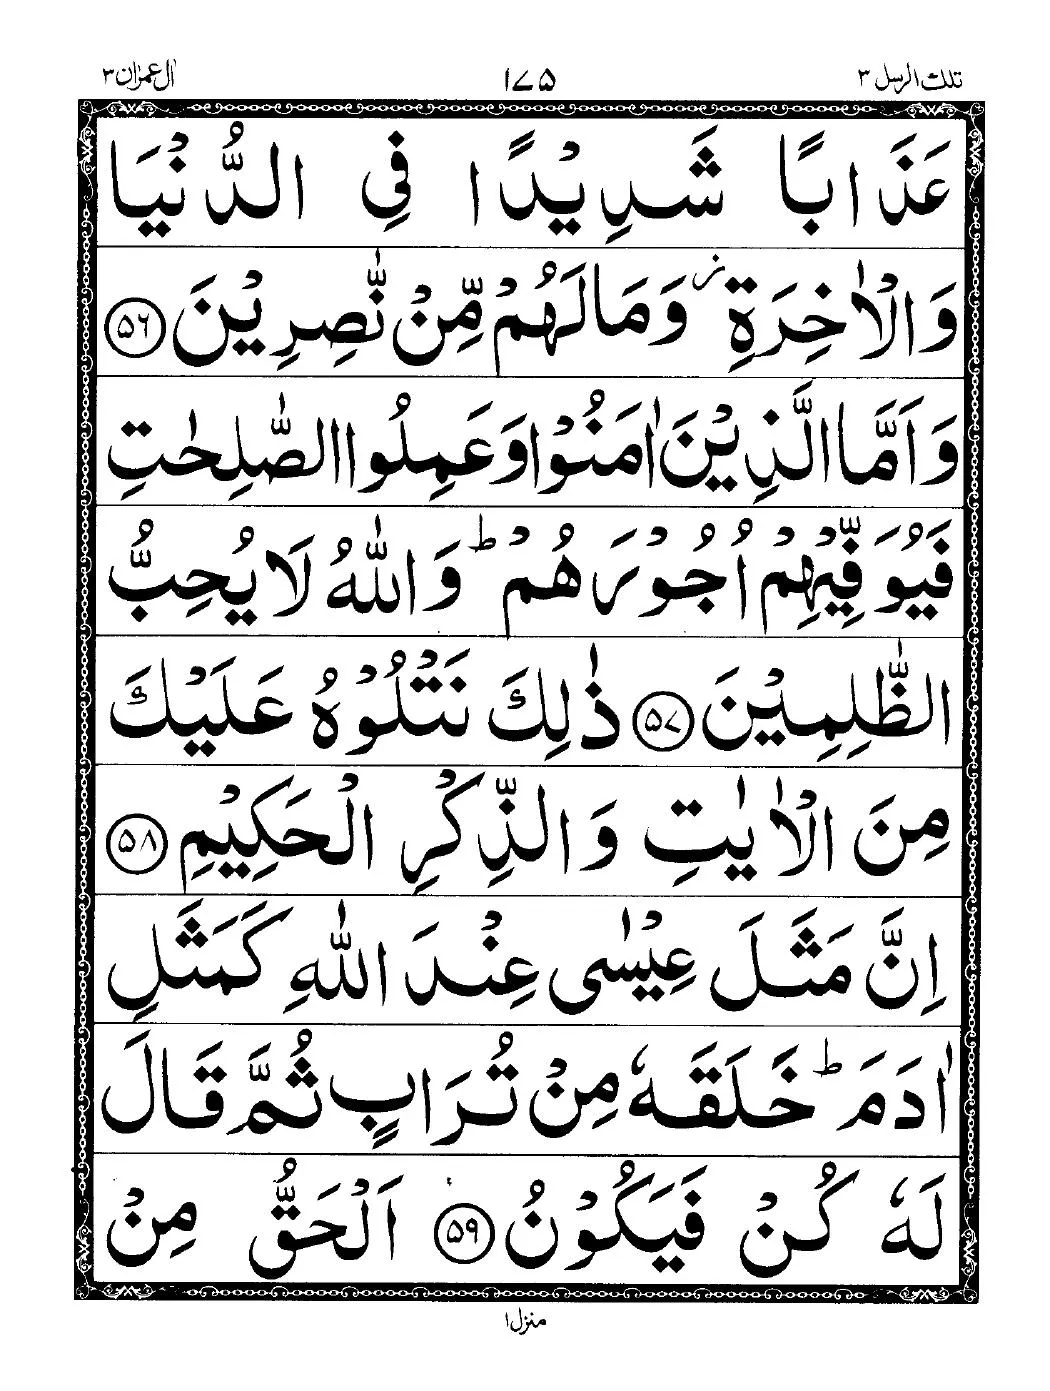 تلك الرسل ٣
١٧٥
اٰل عمرٰن ٣
عَذَابًا شَدِيْدًا فِي الدُّنْيَا
وَالْاٰخِرَةِ ز وَمَا لَهُمْ مِّنْ نّٰصِرِيْنَ ۵۶
وَاَمَّا الَّذِيْنَ اٰمَنُوْا وَعَمِلُوا الصّٰلِحٰتِ
فَيُوَفِّيْهِمْ اُجُوْرَهُمْ ؕ وَاللّٰهُ لَا يُحِبُّ
الظّٰلِمِيْنَ ۵۷ ذٰلِكَ نَتْلُوْهُ عَلَيْكَ
مِنَ الْاٰيٰتِ وَالذِّكْرِ الْحَكِيْمِ ۵۸
اِنَّ مَثَلَ عِيْسٰى عِنْدَ اللّٰهِ كَمَثَلِ
اٰدَمَ ؕ خَلَقَهٗ مِنْ تُرَابٍ ثُمَّ قَالَ
لَهٗ كُنْ فَيَكُوْنُ ۵۹ اَلْحَقُّ مِنْ
منزل ١